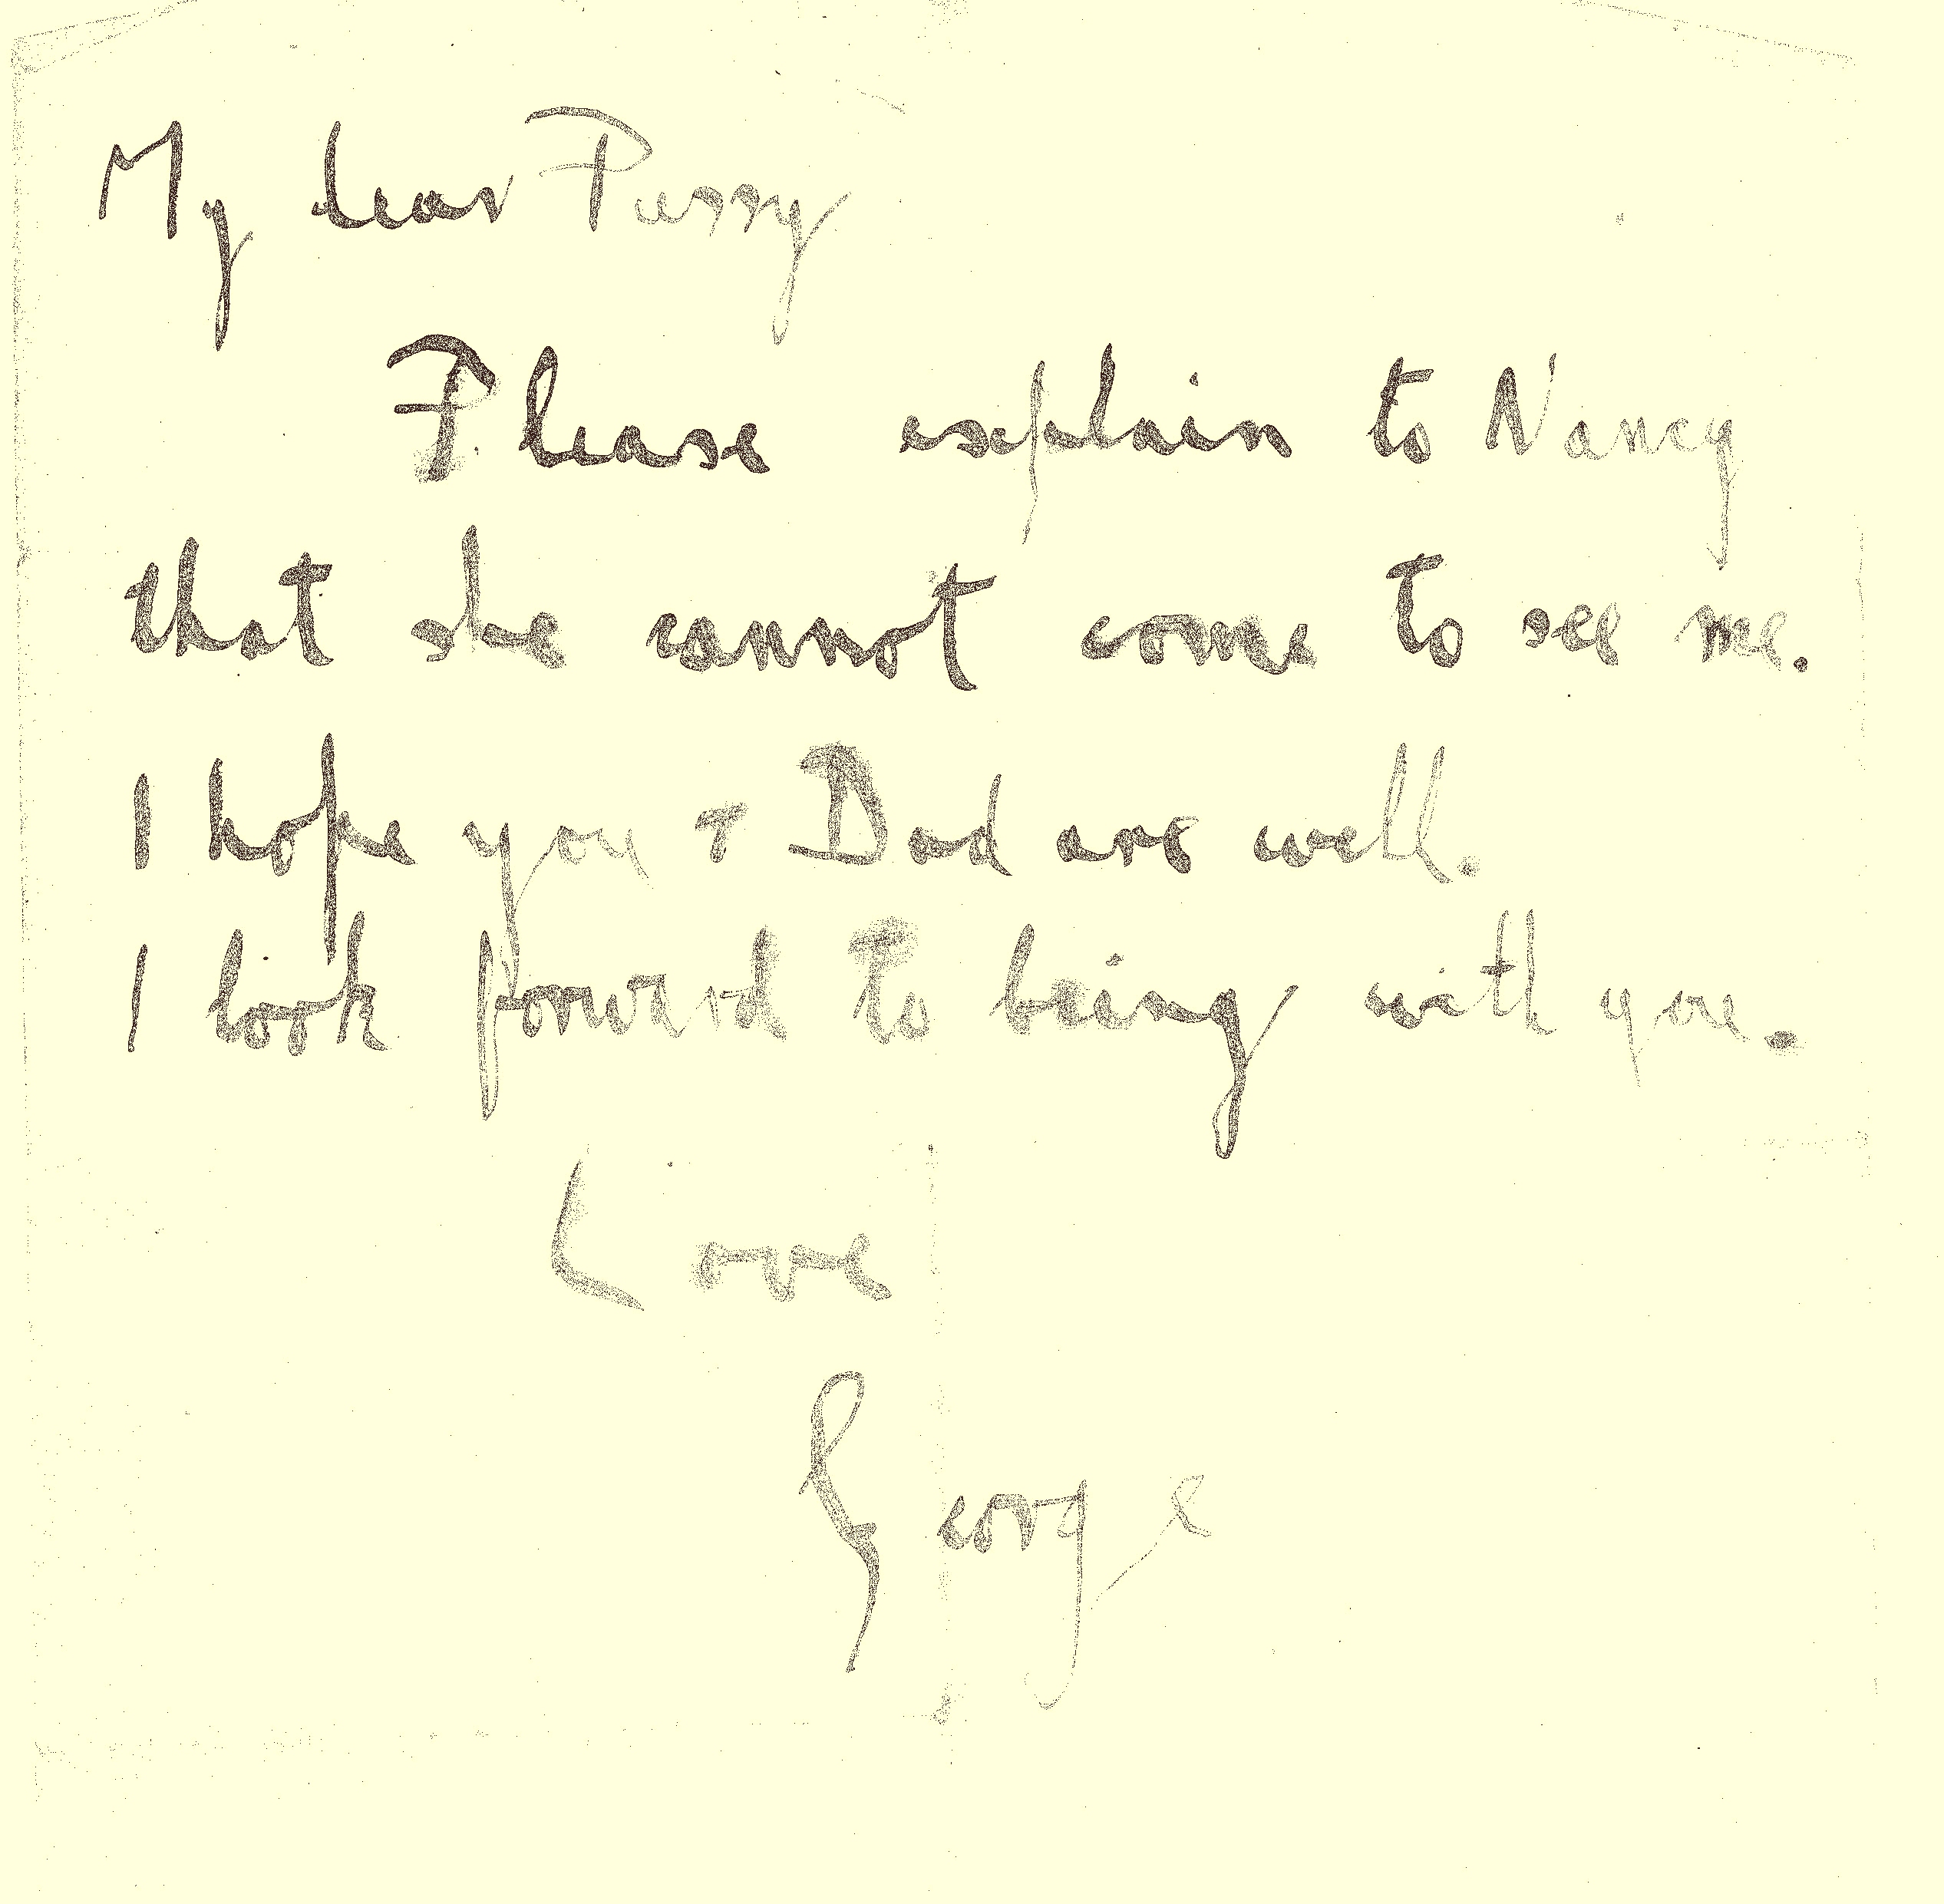 My dear Pussy
Please explain to Nancy
that she cannot come to see me.
I hope you & Dad are well.
I look forward to being with you.
Love
George